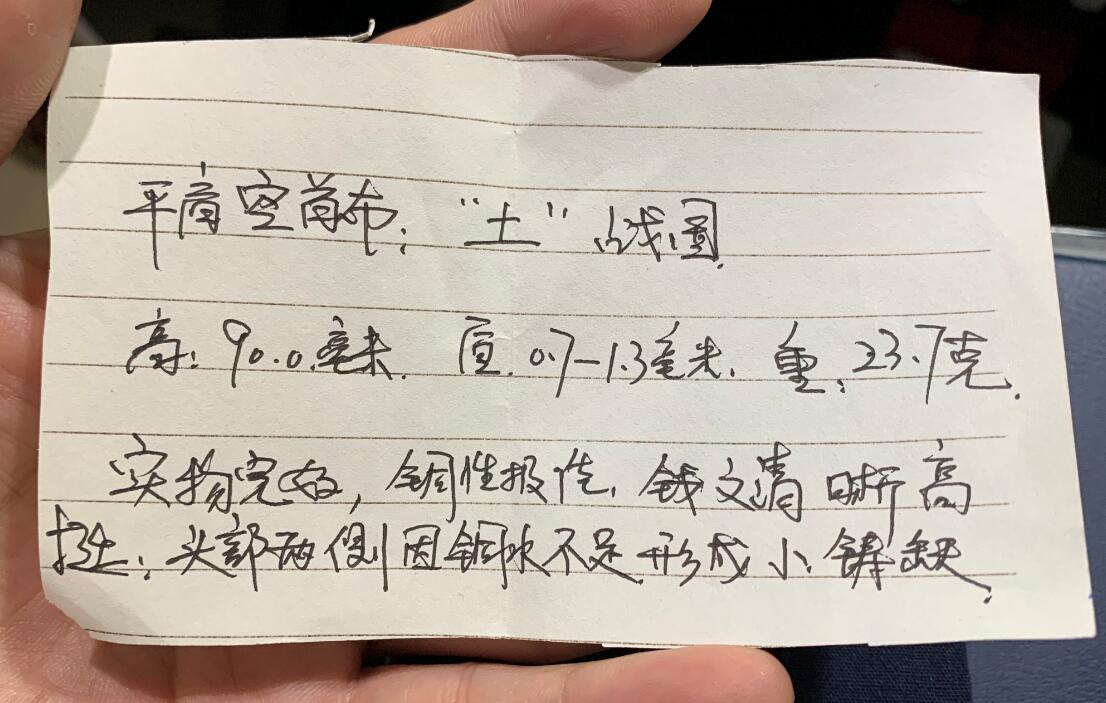 平肩空首布："土" 战国.
高：90.0毫米. 厚.0.7-1.3毫米. 重：23.7克.
实物完好，铜性极佳. 钱文清晰高
挺；头部两侧因铜水不足形成小铸缺.